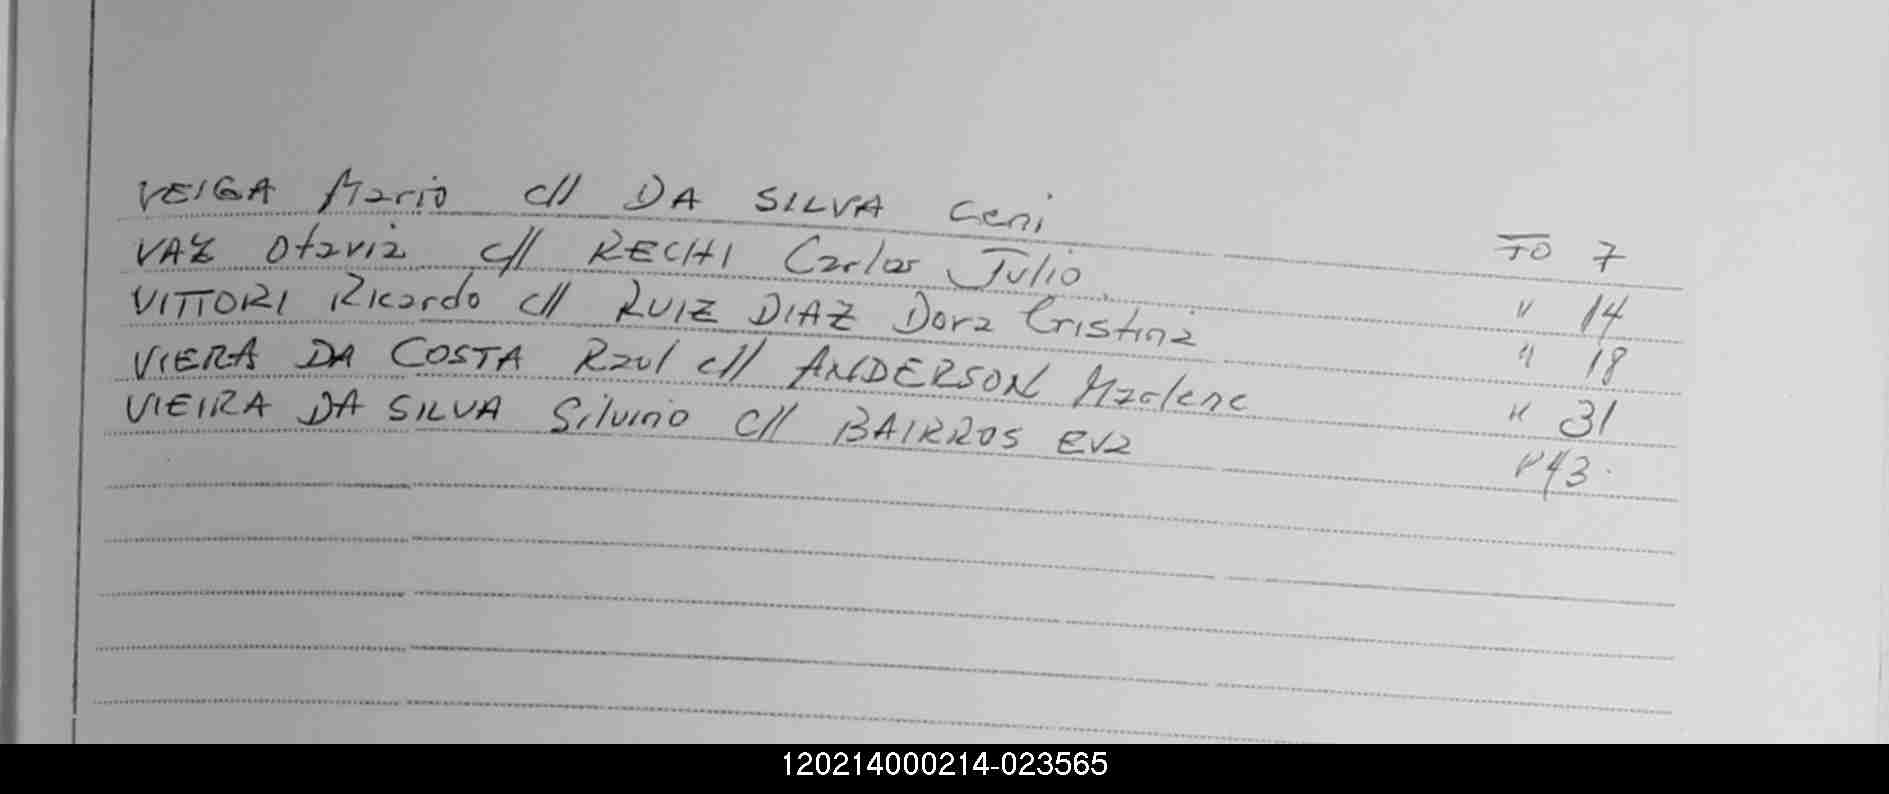 VEIGA Mario c// DA SILVA Ceni Fo 7
VAZ Otavia c// RECHI Carlos Julio " 14
VITTORI Ricardo c// RUIZ DIAZ Dora Cristina " 18
VIERA DA COSTA Raul c// ANDERSON Marlene " 31
VIEIRA DA SILVA Silvino c// BAIRROS Eva " 43
120214000214-023565